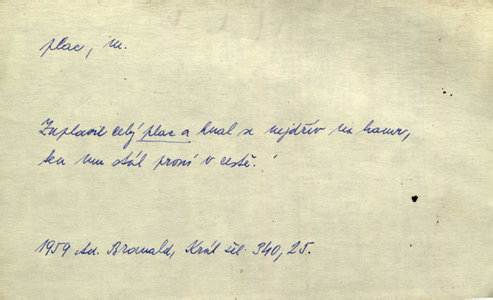 plac, m.
Zaplavil celý plac a hnal se nejdřív na hamr,
ten mu stál první v cestě.
1959 Ad. Branald, Král žel. 340, 25.